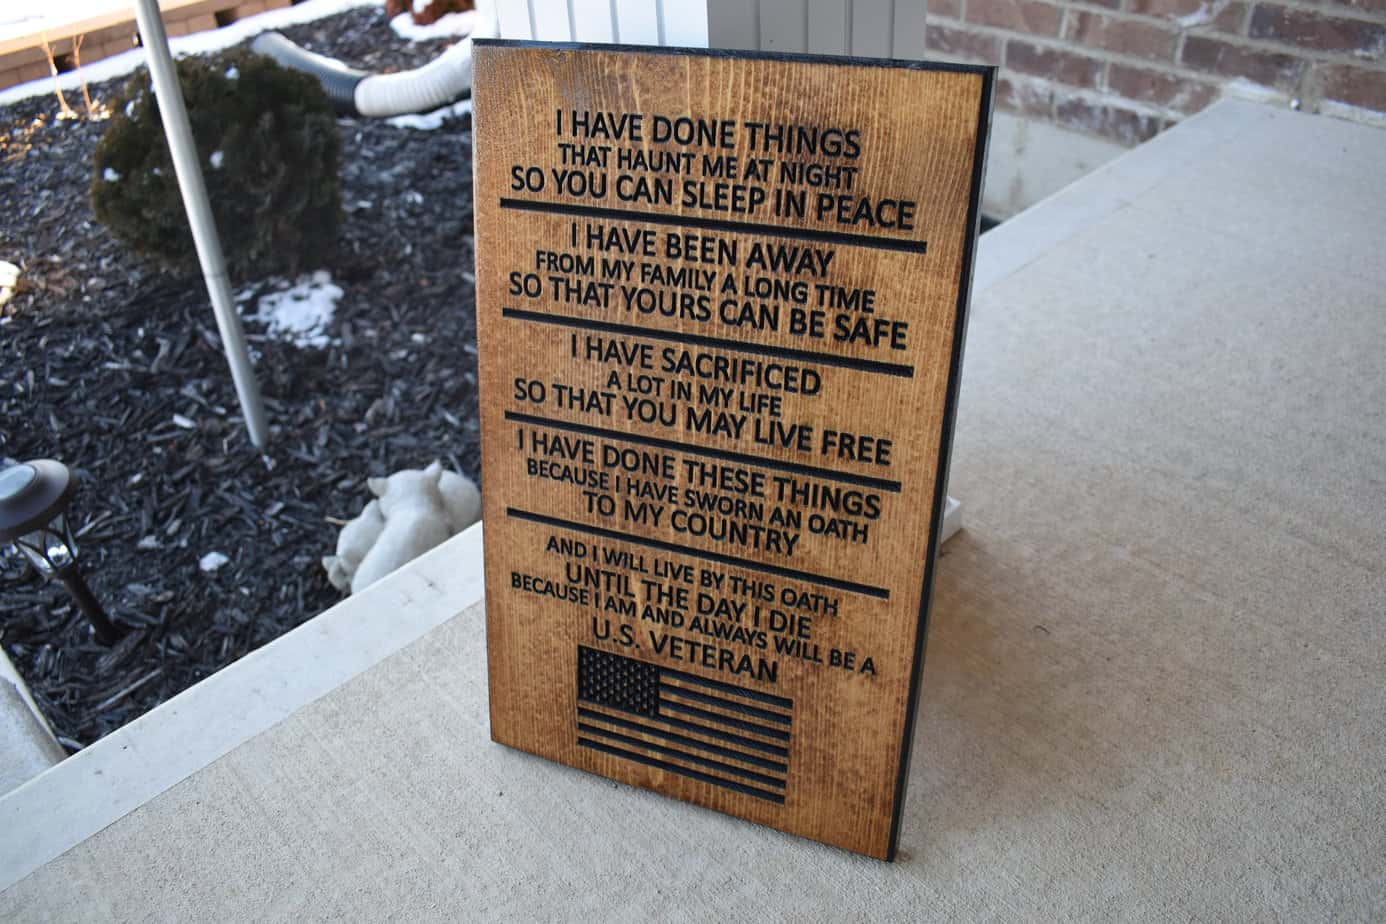 I HAVE DONE THINGS
THAT HAUNT ME AT NIGHT
SO YOU CAN SLEEP IN PEACE
I HAVE BEEN AWAY
FROM MY FAMILY A LONG TIME
SO THAT YOURS CAN BE SAFE
I HAVE SACRIFICED
A LOT IN MY LIFE
SO THAT YOU MAY LIVE FREE
I HAVE DONE THESE THINGS
BECAUSE I HAVE SWORN AN OATH
TO MY COUNTRY
AND I WILL LIVE BY THIS OATH
UNTIL THE DAY I DIE
BECAUSE I AM AND ALWAYS WILL BE A
U.S. VETERAN